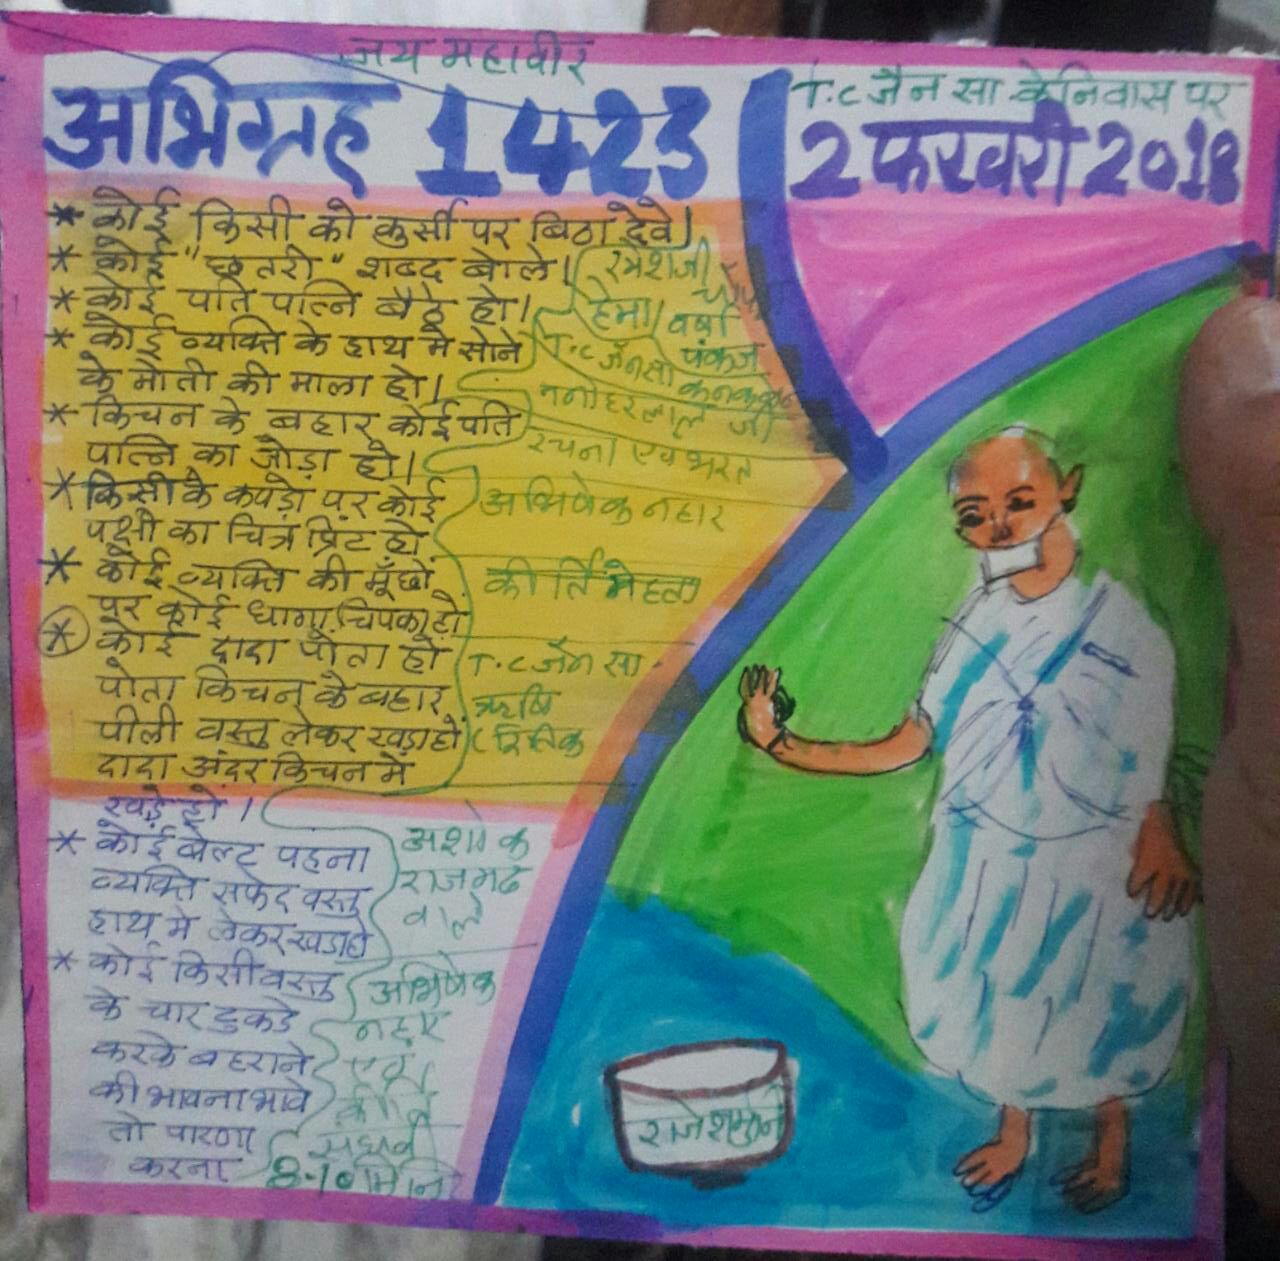 जय महावीर
अभिग्रह 1423
T.C जैन सा के निवास पर
2 फरवरी 2018
* कोई किसी को कुर्सी पर बिठा देवे।
* कोई "छतरी" शब्द बोले।
* कोई पति पत्नि बैठे हो।
* कोई व्यक्ति के हाथ मे सोने
के मोती की माला हो।
* किचन के बहार कोई पति
पत्नि का जोड़ा हो।
* किसी के कपड़ो पर कोई
पक्षी का चित्र प्रिंट हो
* कोई व्यक्ति की मूँछों
पर कोई धागा चिपका हो
* कोई दादा पोता हो
पोता किचन के बहार
पीली वस्तु लेकर खड़ा हो
दादा अंदर किचन मे
खड़े हो।
* कोई बेल्ट पहना
व्यक्ति सफेद वस्तु
हाथ मे लेकर खडा हो
* कोई किसी वस्तु
के चार टुकडे
करके बहराने
की भावना भावे
तो पारणा
करना
रमेशजी
हेमा। वर्षा
पंकज
T.C जैन सा
मनोहरलाल जी
रचना एवं भरत
अभिषेक नहार
कीर्ति मेहता
T.C जैन सा
ऋषि
रितिक
अशोक
राजगढ
वाले
अभिषेक
नहार
एवं
8-10 मिनि
राजेशमुनि